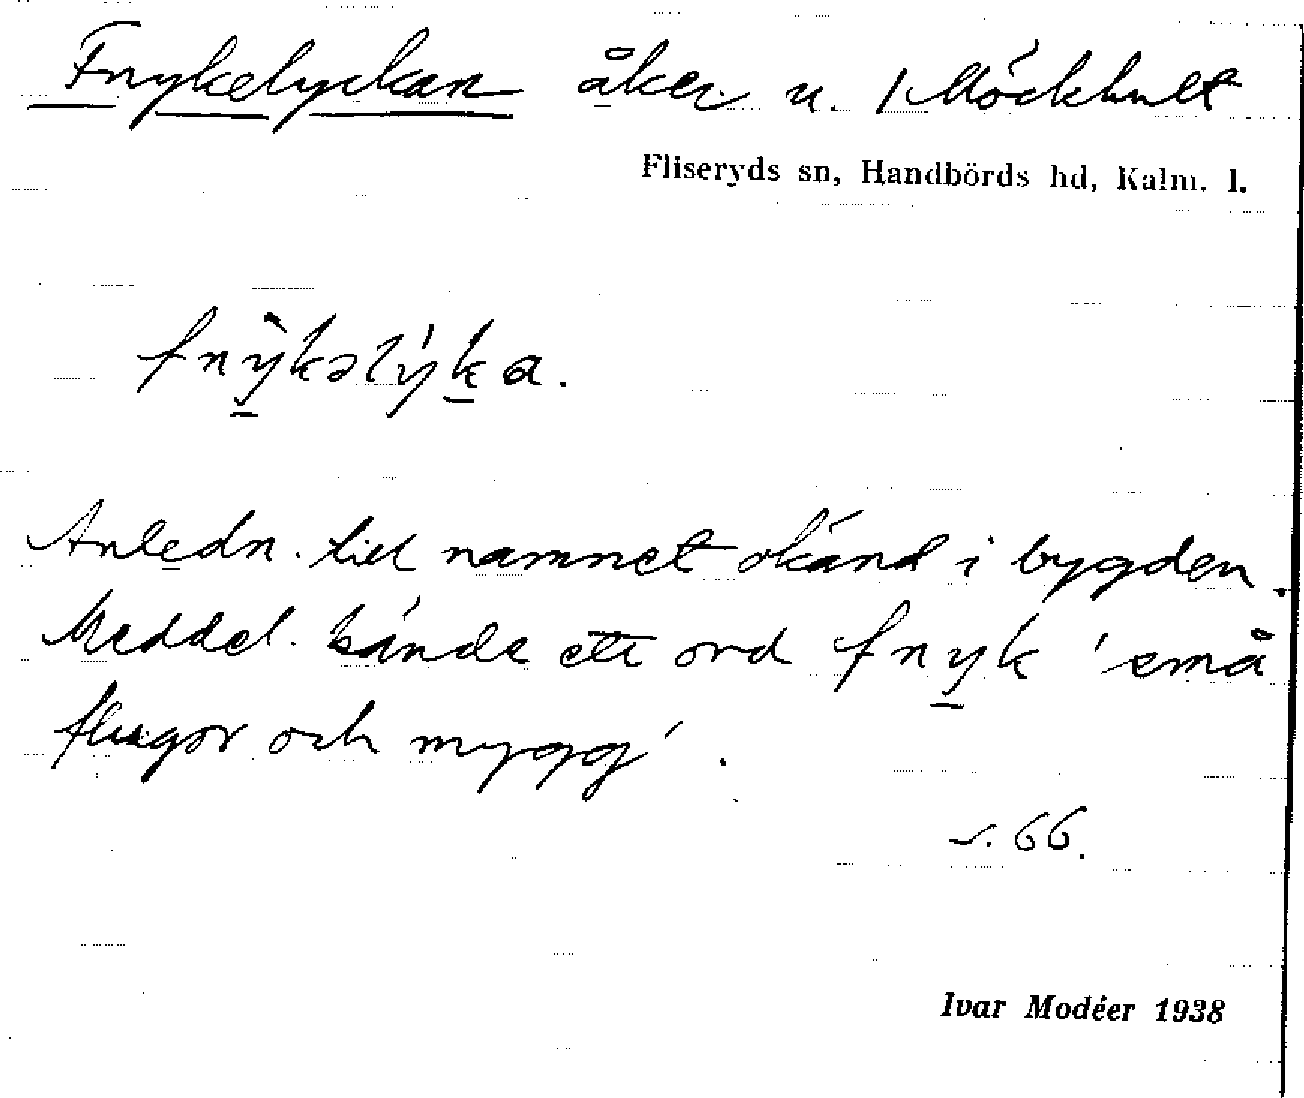 Fnykelyckan åker u. / Möckhult
Fliseryds sn, Handbörds hd, Kalm. l.
fnỳ̠kəlýk̠a.
Anledn. till namnet okänd i bygden.
Meddel. kände ett ord fny̠k 'små
flugor och mygg'.
s. 66.
Ivar Modéer 1938